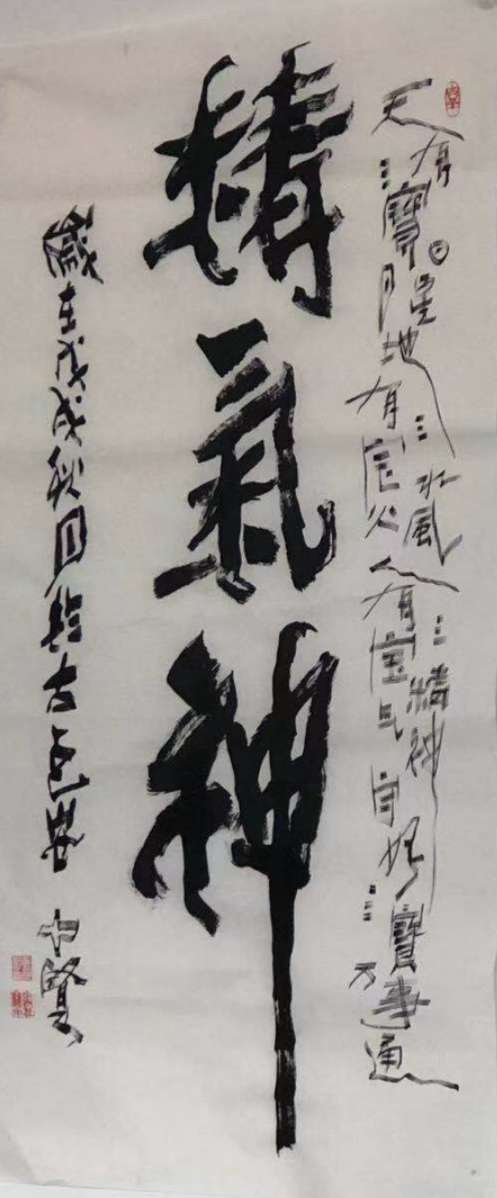 天有三寶日月星地有三宝水火風人有三宝精气神守好三寶万事通
精氣神
歲在戊戌秋月於古长安 賢